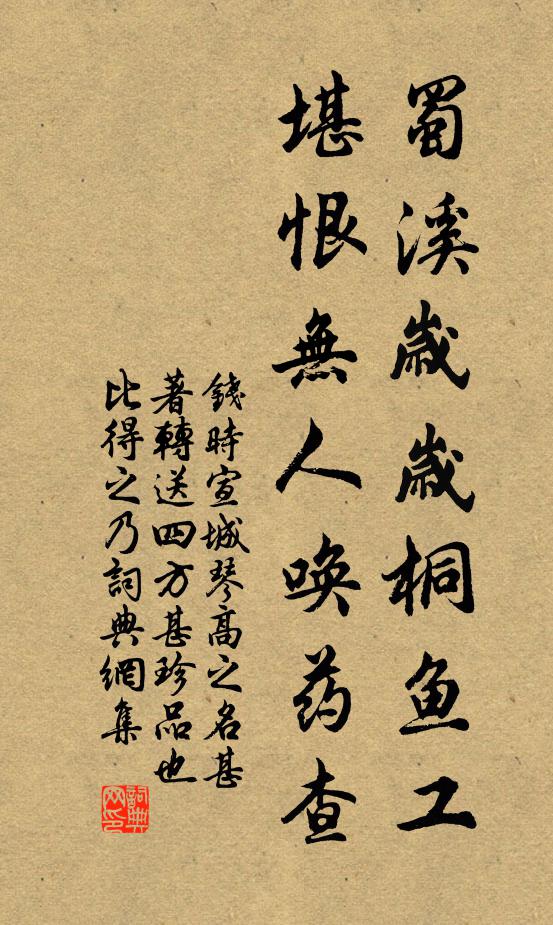 蜀溪歲歲桐鱼工
堪恨無人唤药查
錢時宣城琴高之名甚
著轉送四方甚珍品也
比得之乃詞典網集
詞典网印